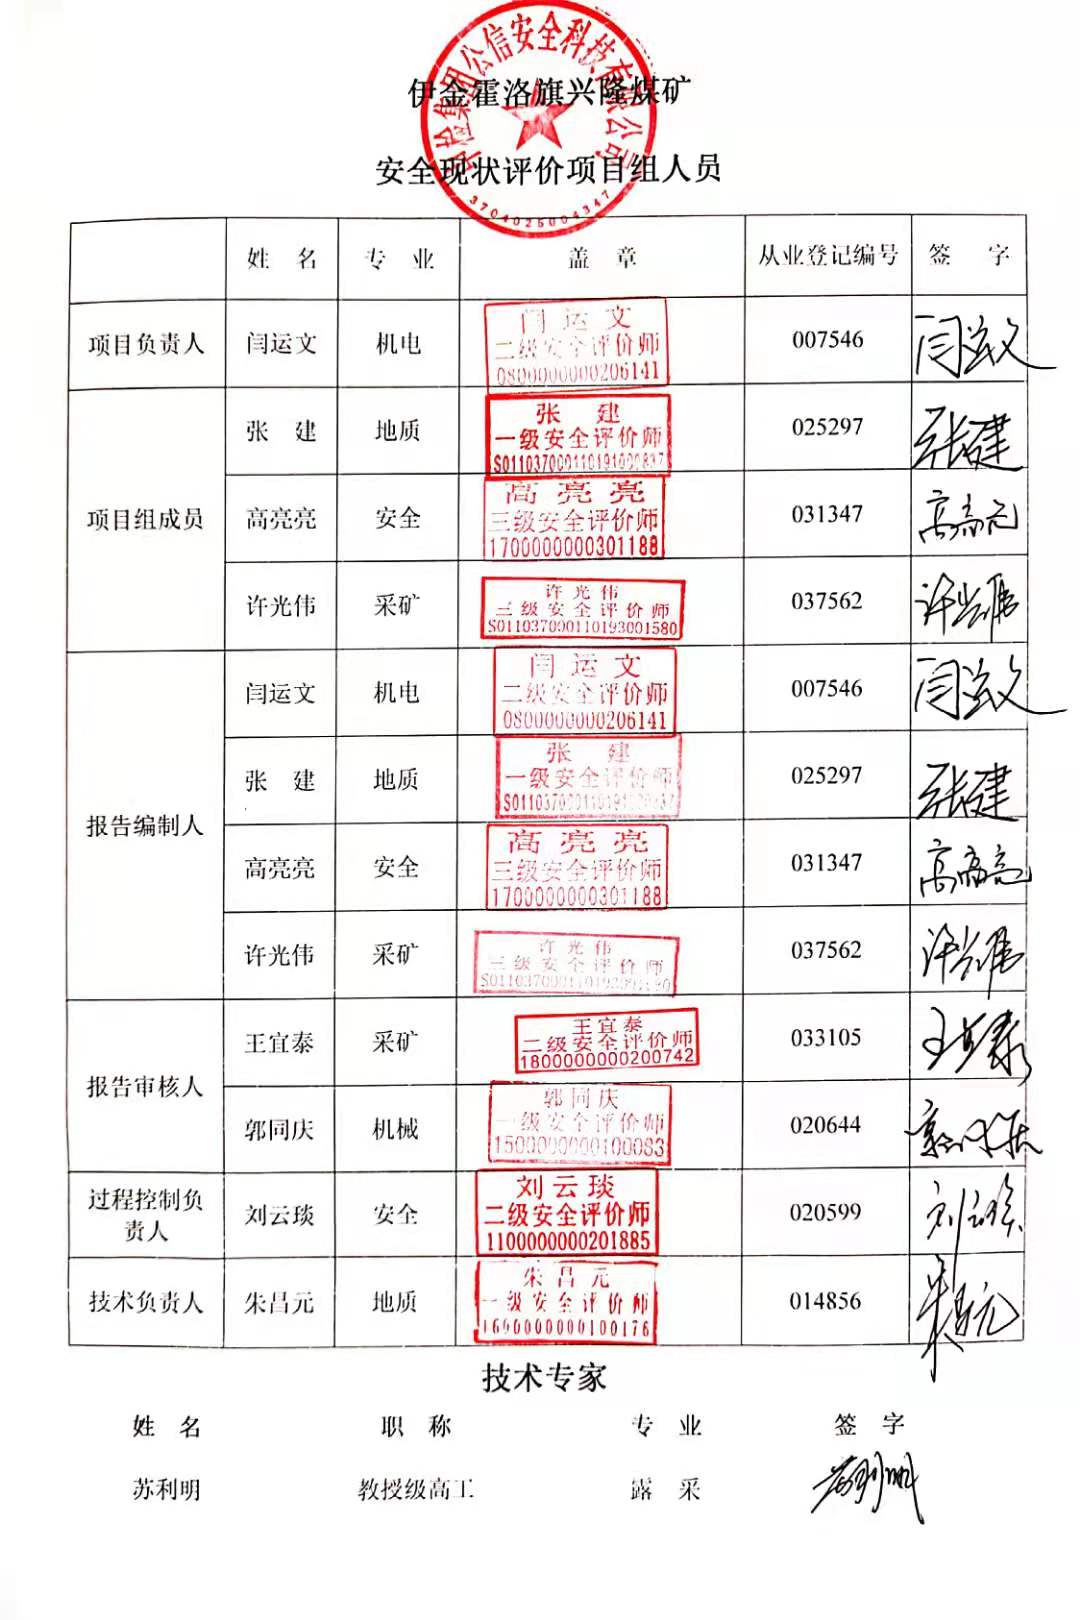 中检集团公信安全科技有限公司
3704025004347
伊金霍洛旗兴隆煤矿
安全现状评价项目组人员
姓 名 专 业 盖 章 从业登记编号 签 字
项目负责人 闫运文 机电 闫运文 二级安全评价师 0800000000206141 007546 闫运文
项目组成员
张 建 地质 张 建 一级安全评价师 S011037000110191000837 025297 张建
高亮亮 安全 高亮亮 三级安全评价师 1700000000301188 031347 高亮亮
许光伟 采矿 许光伟 三级安全评价师 S011037000110193001580 037562 许光伟
报告编制人
闫运文 机电 闫运文 二级安全评价师 0800000000206141 007546 闫运文
张 建 地质 张 建 一级安全评价师 S011037000110191000837 025297 张建
高亮亮 安全 高亮亮 三级安全评价师 1700000000301188 031347 高亮亮
许光伟 采矿 许光伟 三级安全评价师 S011037000110193001580 037562 许光伟
报告审核人
王宜泰 采矿 王宜泰 二级安全评价师 1800000000200742 033105 王宜泰
郭同庆 机械 郭同庆 一级安全评价师 1500000000100083 020644 郭同庆
过程控制负
责人
刘云琰 安全 刘云琰 二级安全评价师 1100000000201885 020599 刘云琰
技术负责人 朱昌元 地质 朱昌元 一级安全评价师 1600000000100176 014856 朱昌元
技术专家
姓 名 职 称 专 业 签 字
苏利明 教授级高工 露 采 苏利明